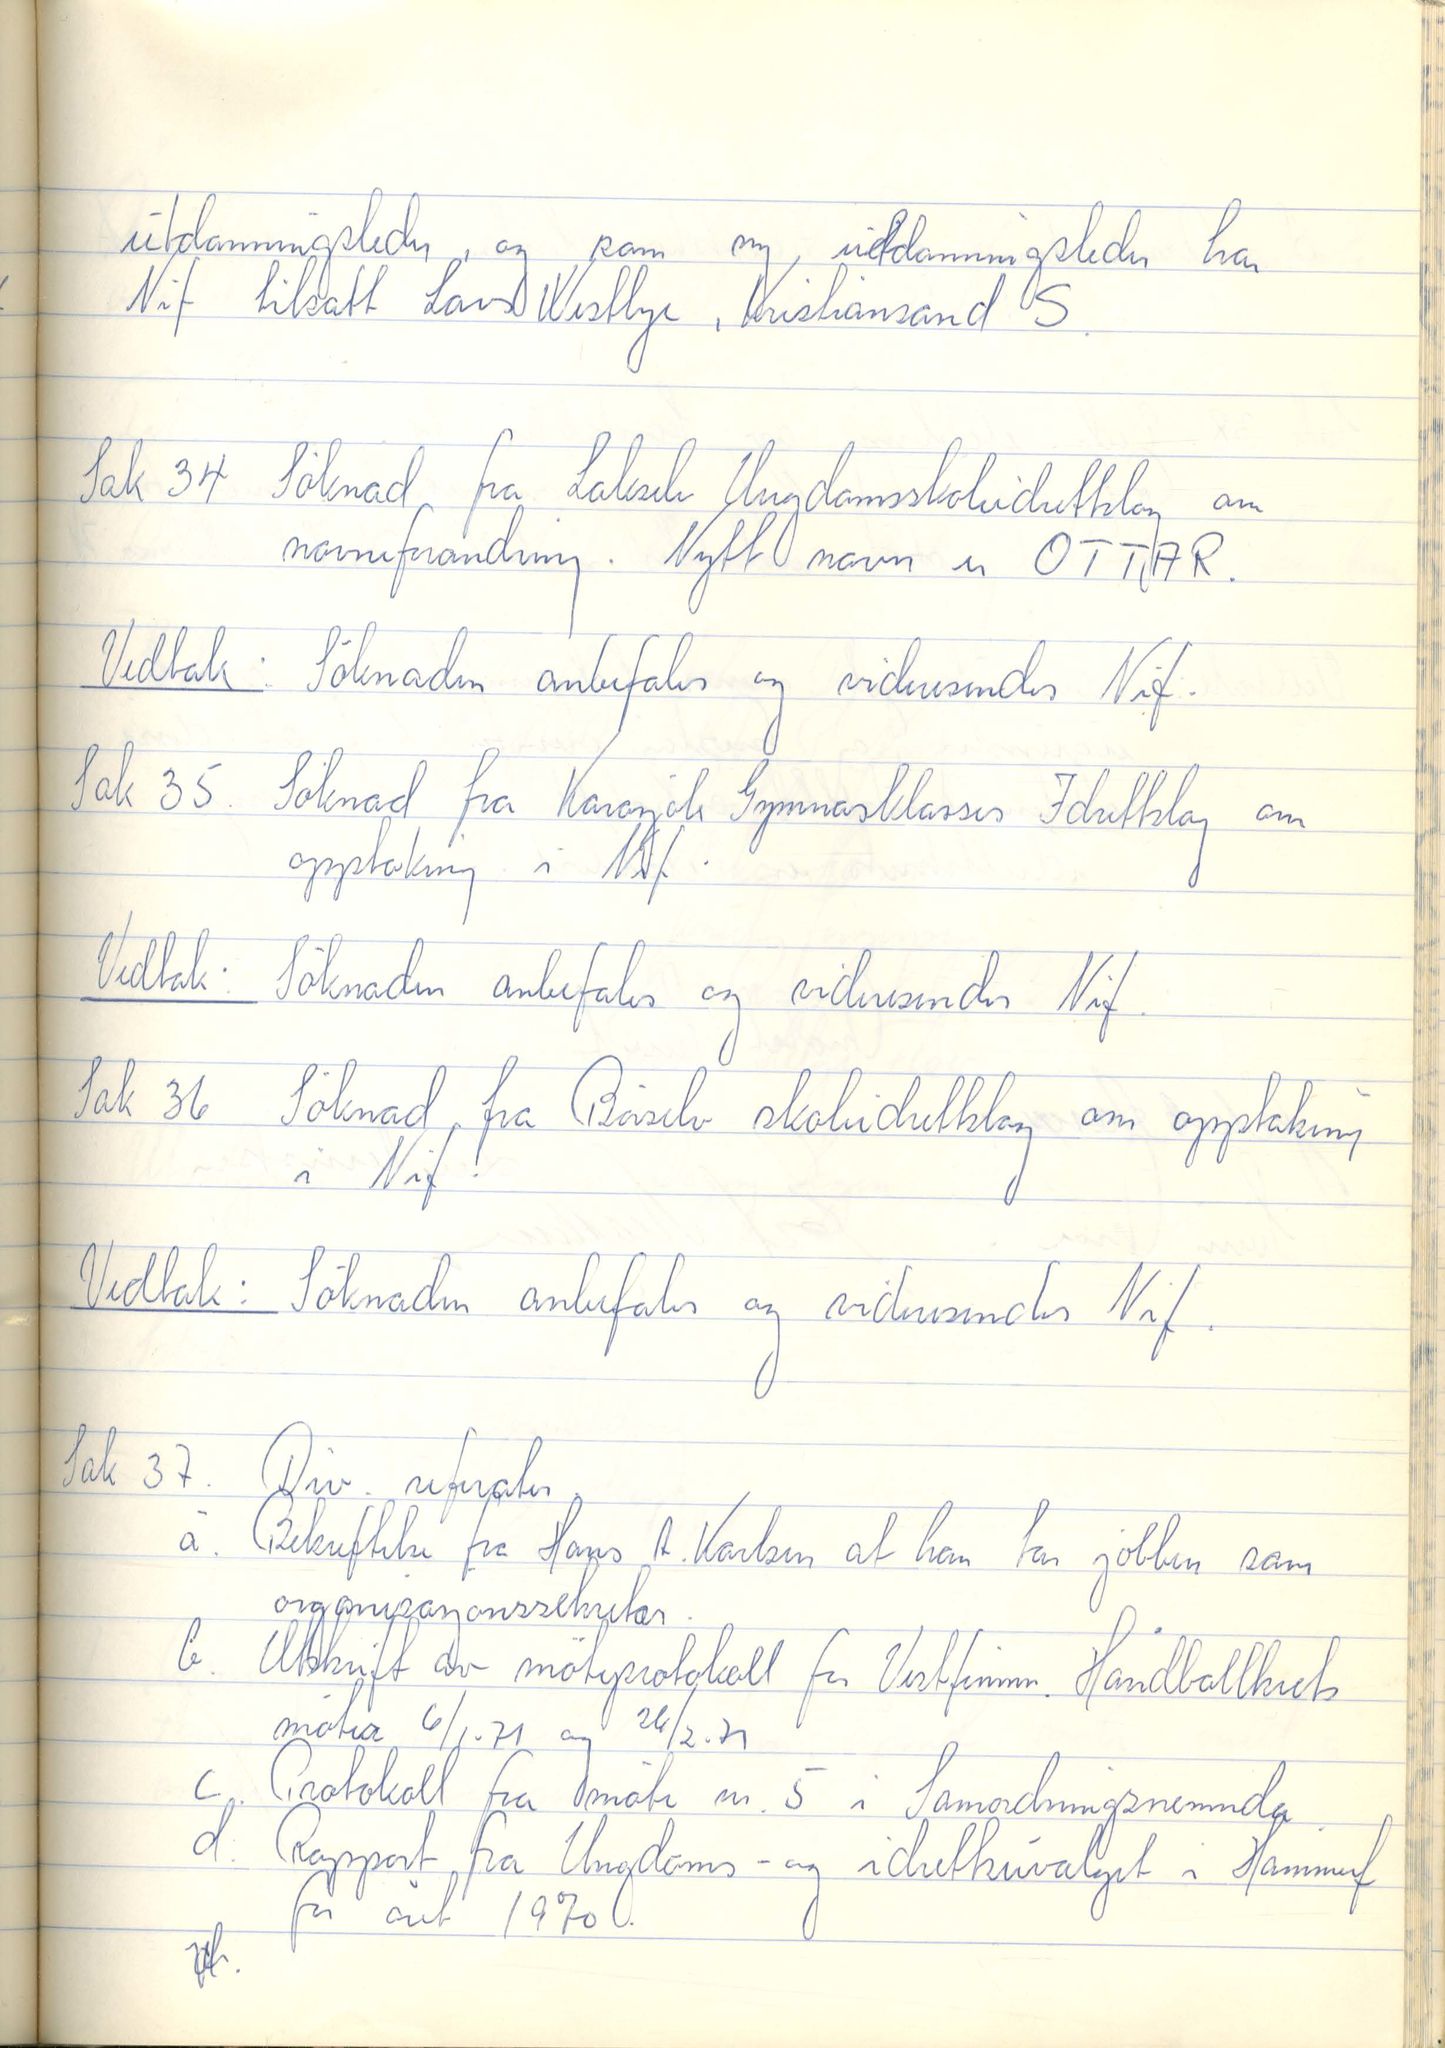 utdanningsleder, og som ny utdanningsleder har
Nif tilsatt Lars Vestbye, Kristiansand S.
Sak 34 Söknad fra Lakselv Ungdomsskoleidrettslag om
navneforandring. Nytt navn er OTTAR.
Vedtak: Söknaden anbefales og videresendes Nif.
Sak 35. Söknad fra Karasjok Gymnasklasses Idrettslag om
opptaking i Nif.
Vedtak: Söknaden anbefales og videresendes Nif.
Sak 36 Söknad fra Börselv skoleidrettslag om opptaking
i Nif.
Vedtak: Söknaden anbefales og videresendes Nif.
Sak 37. Div. referater.
a. Bekreftelse fra Hans A. Karlsen at han tar jobben som
organisasjonssekretær.
b. Utskrift av möteprotokoll for Vestfinnm. Handballkrets
möter 6/1.71 og 26/2.71
c. Protokoll fra möte nr. 5 i Samordningsnemnda
d. Rapport fra Ungdoms- og idrettsutvalget i Hammerf
for året 1970.